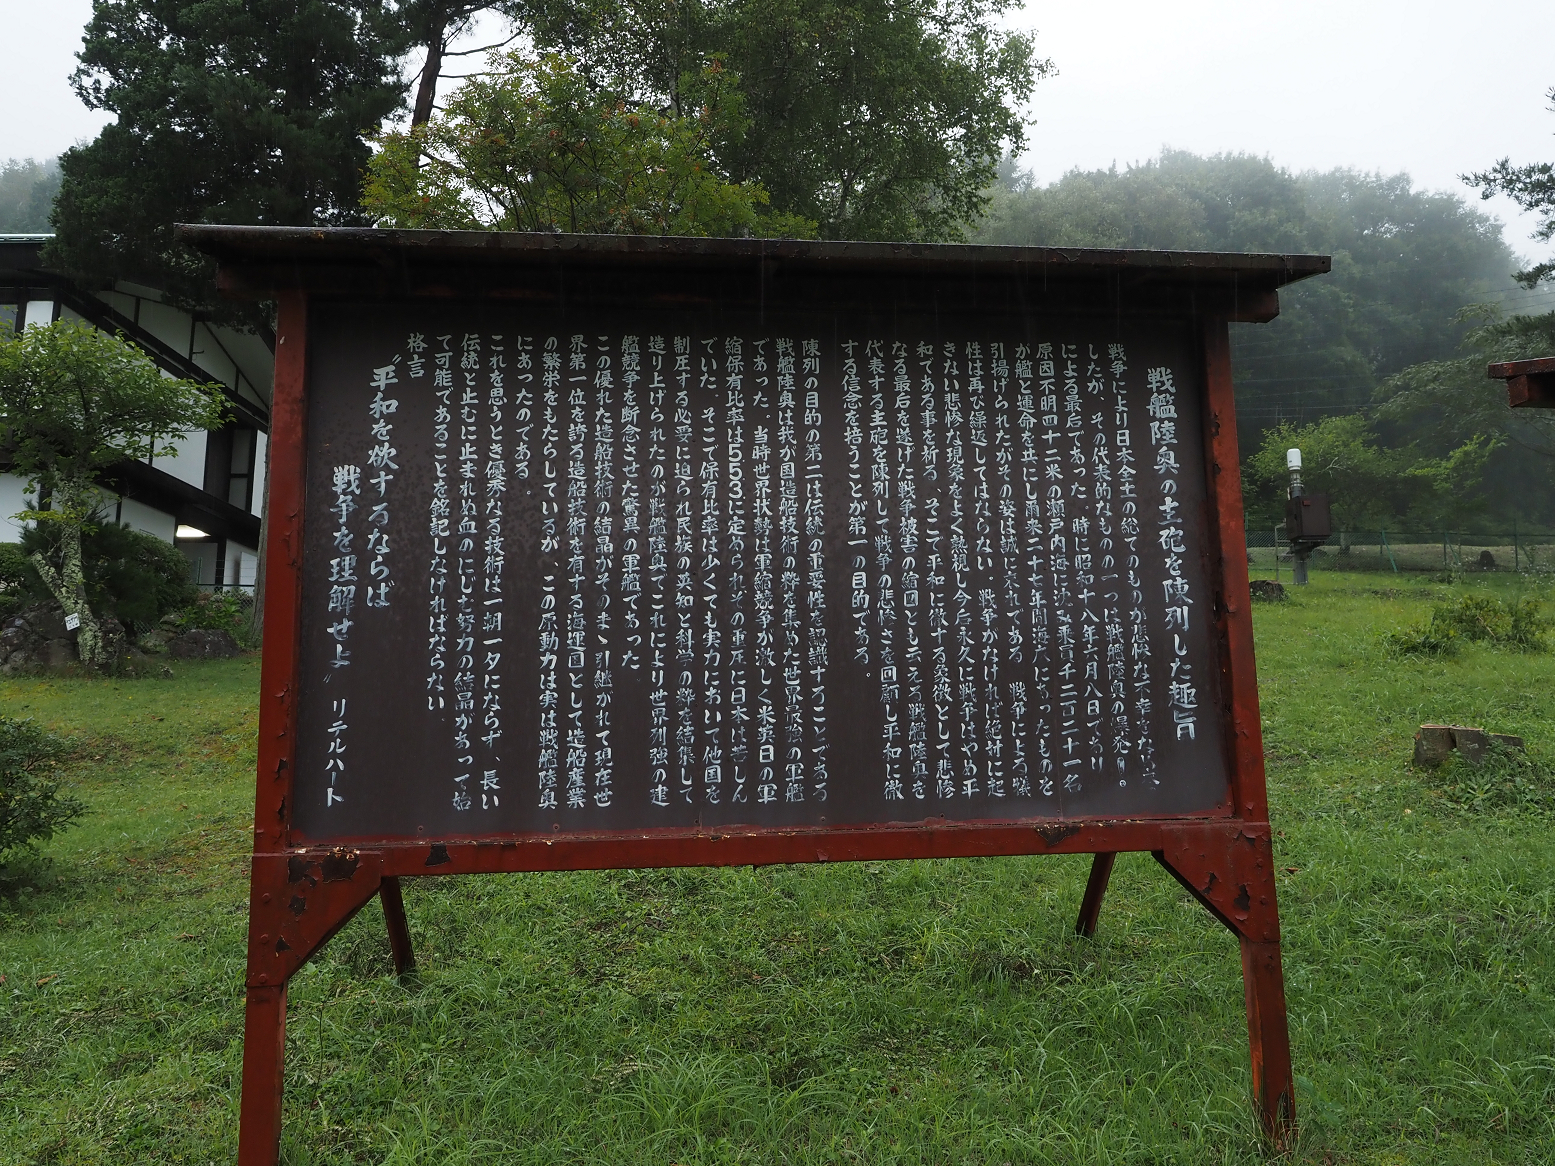 戦艦陸奥の主砲を陳列した趣旨
戦争により日本全土の総てのもりが悲惨な不幸を
したが、その代表的なものの一つに戦艦陸奥の爆発
による最后であった。時に昭和十八年六月八日であり
原因不明四十二米の瀬戸内海に沈む乗員千二百二十一名
が艦と運命を共にし爾来二十七年間海底にあったものを
引揚げられたがその姿は誠に哀れである 戦争による惨
性は再び繰返してはならない。戦争がなければ絶対に起
きない悲惨な現実をよく熟視し今后永久に戦争はやめ平
和である事を祈る。そこで平和に徹する象徴として悲惨
なる最后を遂げた戦争被害の縮図とも云える戦艦陸奥を
代表する主砲を陳列して戦争の悲惨さを回顧し平和に徹
する信念を培うことが第一の目的である。
陳列の目的の第二は伝統の重要性を認識することである
戦艦陸奥は我が国造船技術の粋を集めた世界最強の軍艦
であった、当時世界状勢は軍縮競争が激しく米英日の軍
縮保有比率は553に定められその重圧に日本は苦しん
でいた、そこで保有比率は少くても実力において他国を
制圧する必要に迫られ民族の英和と科学の粋を結集して
造り上げられたのが戦艦陸奥でこれにより世界列強の建
艦競争を断念させた驚異の軍艦であった
この優れた造船技術の結晶がそのまゝ引継がれて現在世
界第一位を誇る造船技術を有する海運国として造船産業
の繁栄をもたらしているが、この原動力は実は戦艦陸奥
にあったのである。
これを思うとき優秀なる技術は一朝一夕にならず、長い
伝統と止むに止まれぬ血のにじむ努力の結晶があって始
て可能であることを銘記しなければならない
格言
〝平和を欲するならば
戦争を理解せよ〟 リデルハート